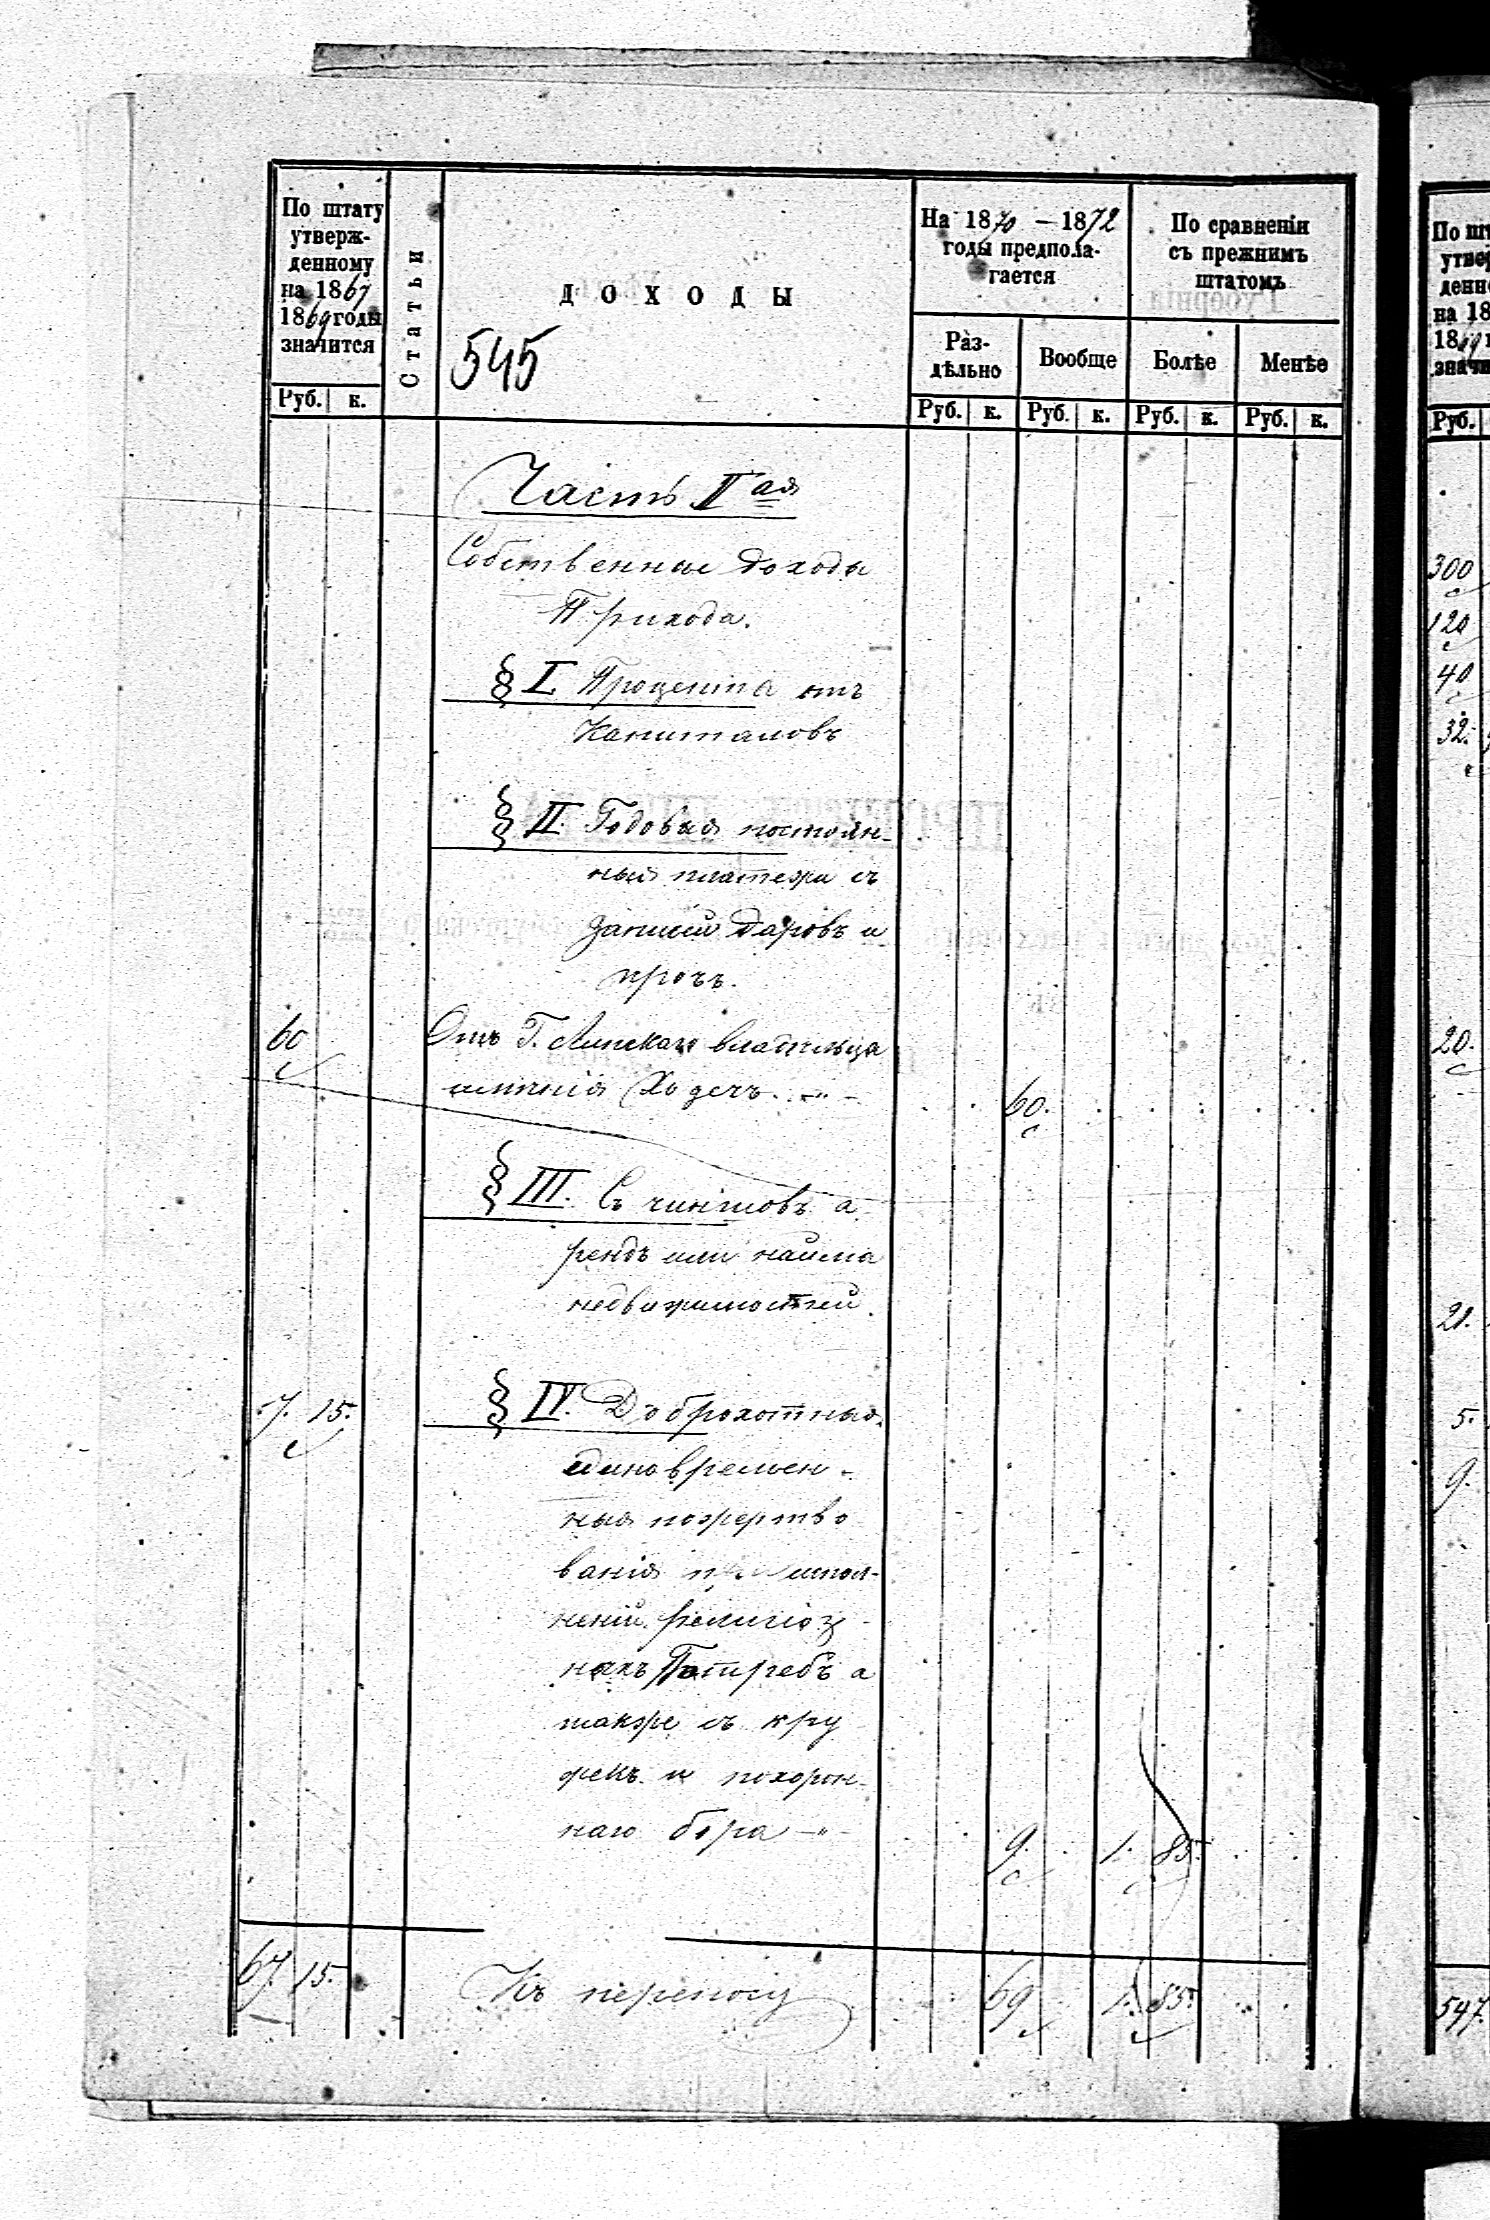 По штату
утверж-
денному
на 1867
1869 годы
значится
Руб. к.
Статьи
ДОХОДЫ
545
На 1870 — 1872
годы предпола-
гается
Раз-
дѣльно
Вообще
Руб. к. Руб. к.
По сравненіи
съ прежнимъ
штатомъ
Болѣе
Менѣе
Руб. к. Руб. к.
Часть Iая
Собственные доходы
Прихода.
§ I. Проценты отъ
Капиталовъ
§ II. Годовыя постоян-
ныя платежи съ
записей даровъ и
проч.
60 Отъ Г. Липскаго владѣльца
имѣнія Ходечъ. -"- 60.
§ III. Съ чиншовъ а
рендъ или найма
недвижимостей.
7. 15. § IV. Доброхотныя
единовремен-
ныя пожертво
ванія при испол-
неній религіоз-
ныхъ Потребъ а
также съ кру
жекъ и похорон-
наго бора -"- 9. 1. 85.
67. 15. Къ переносу 69 1. 85.
По шт
утвер
денно
на 18
18
знач
Руб.
300
120
40
32.
20.
21.
5.
9.
547.